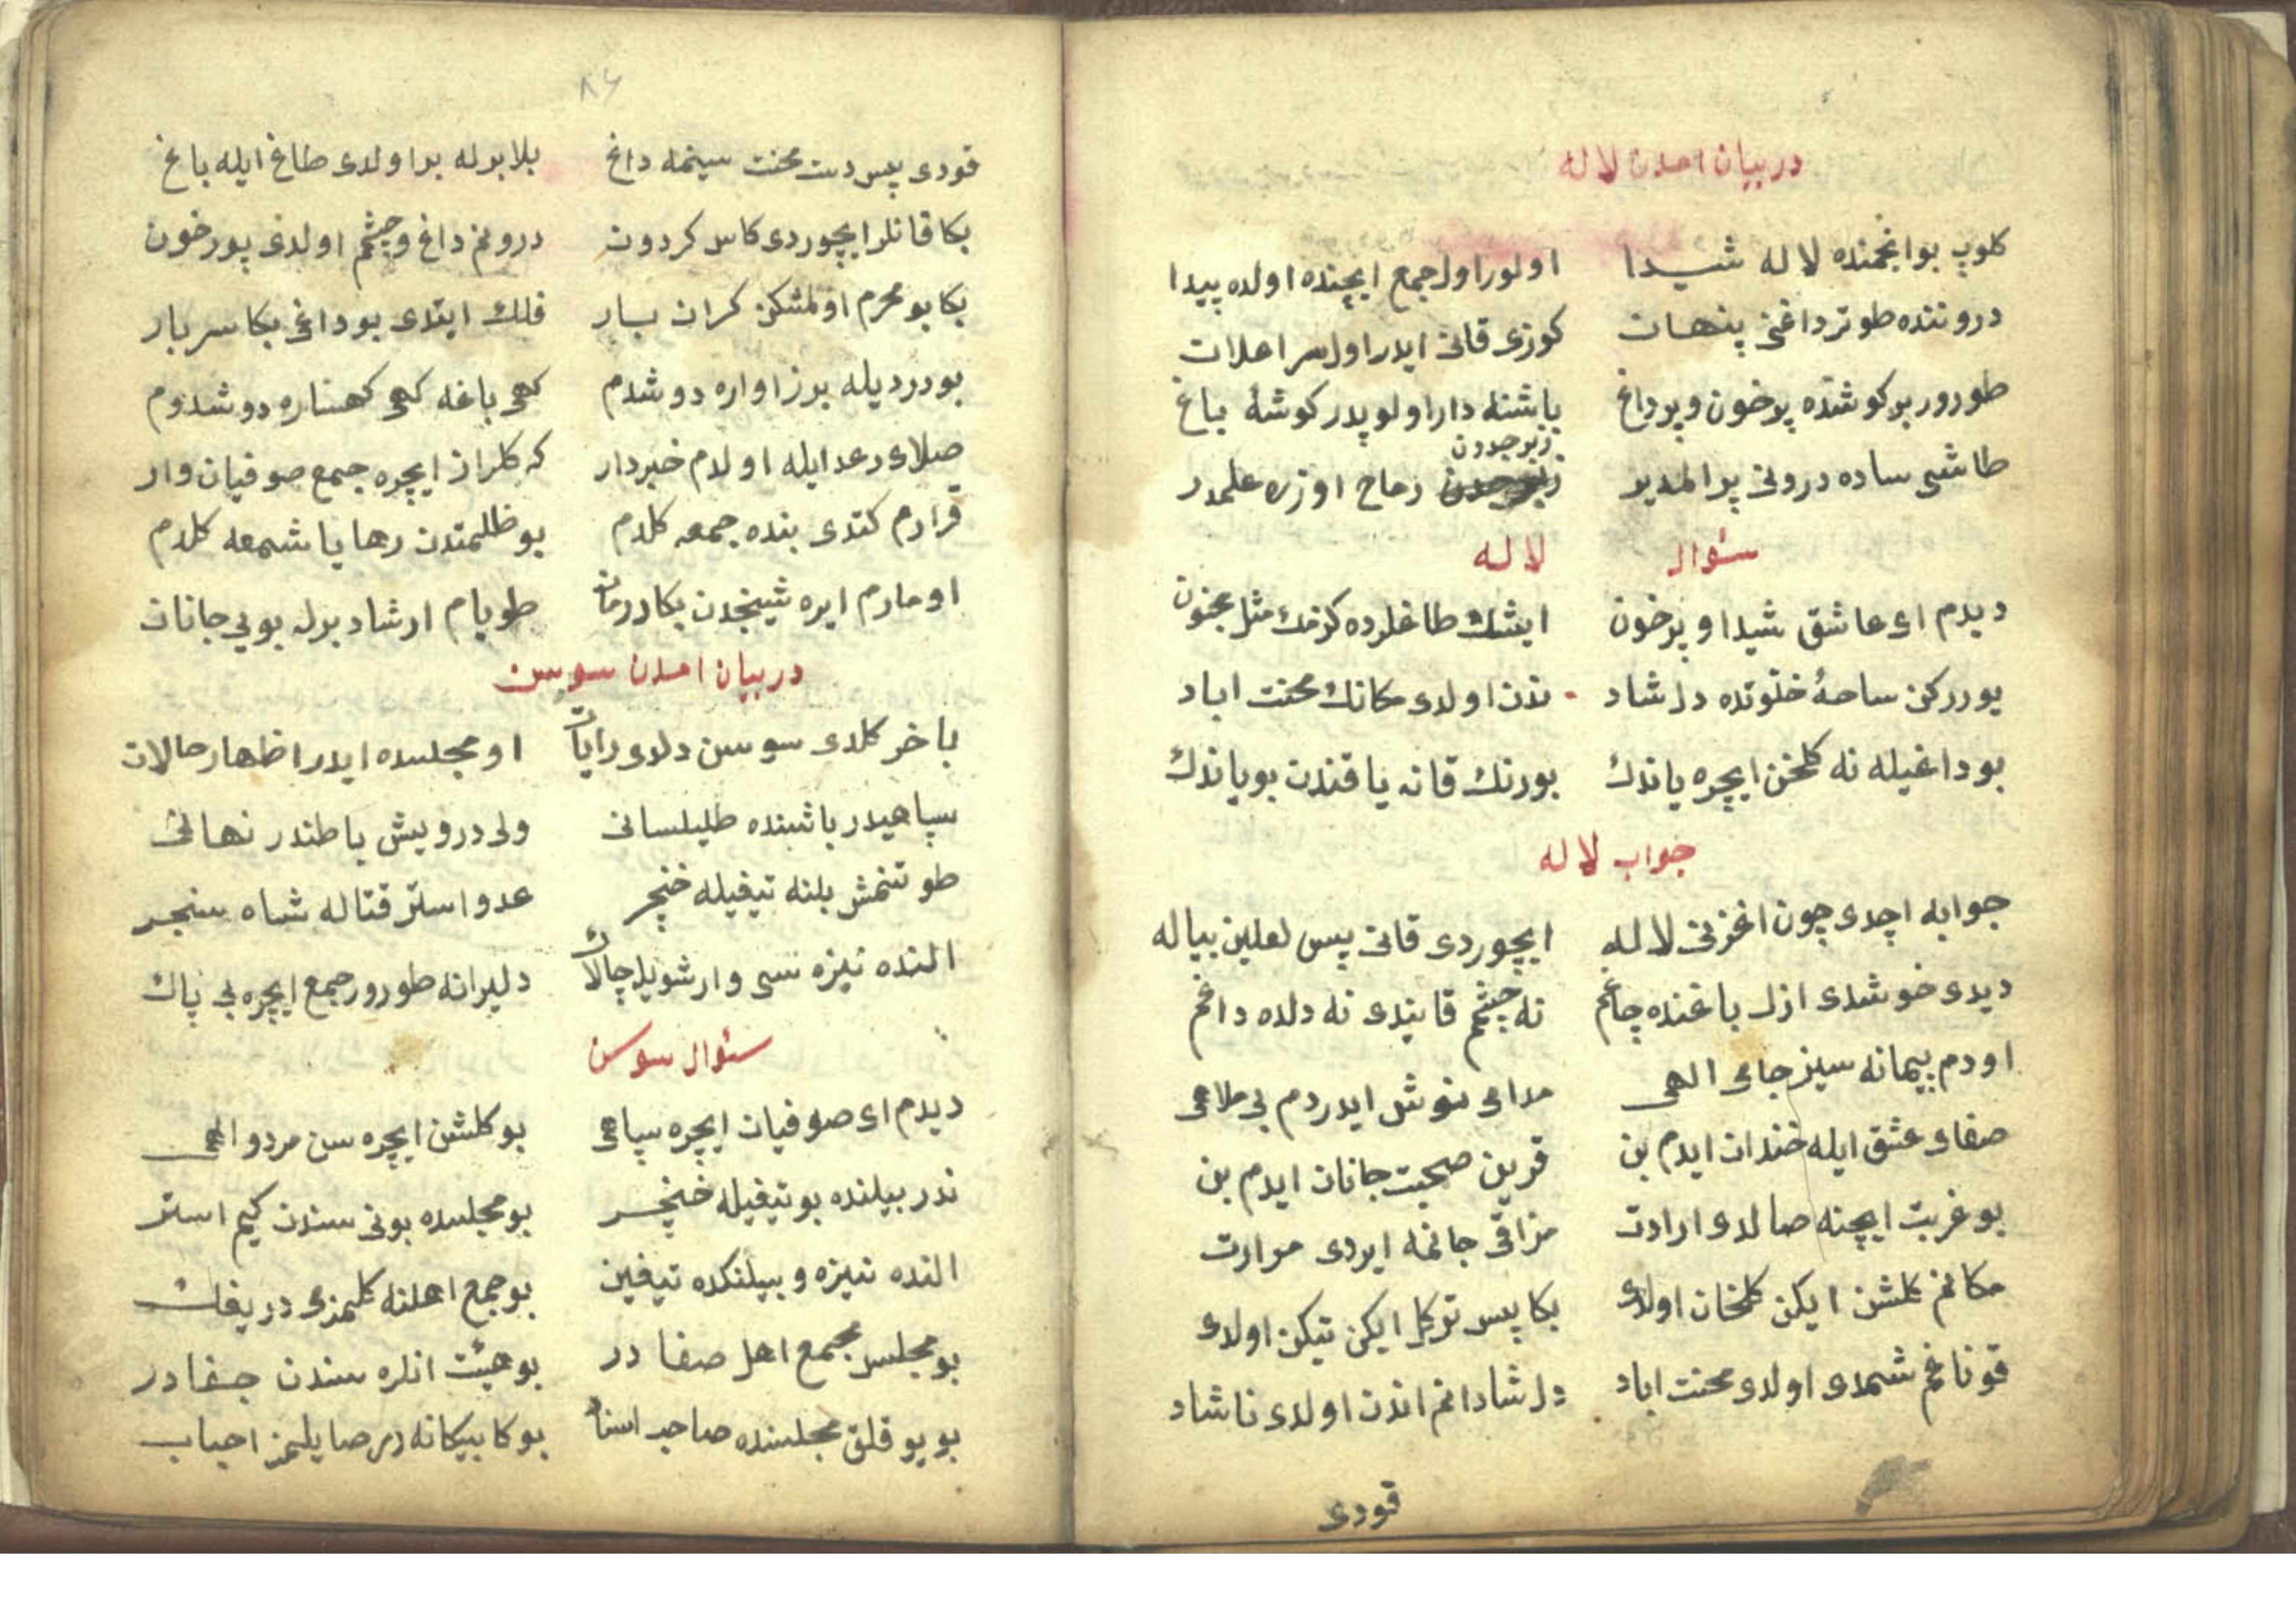 در بیان امدن لاله
كلوپ بو انجمنده لاله شیدا اولور اول جمع ایچنده اولده پیدا
دروننده طوتر داغنی پنهان كوزی قانی ایدر اول سر اعلان
طورور بر كوشده پر خون و پر داغ باشنه دار اولوپدر كوشهٔ باغ
زبرجددن
طاشی ساده درونی پر المدیر رماح اوزره علمدر
سئوال لاله
دیدم ای عاشق شیدا و پر خون ایشك طاغلرده كزمك مثل مجنون
یوررکن ساحهٔ خلوتده دلشاد ندن اولدی مكانك محنت اباد
بو داغیله نه كلخن ایچره یاندك بو رنك قانه یا قندن بویاندك
جواب لاله
جوابه اچدی چون اغزنی لاله ایچوردی قانی پس لعلین پیاله
دیدی خوشدی ازل باغنده چاغم نه چشم قانیدی نه دلده داغم
اودم پیمانه سیز جامی الهی مدامی نوش ایدردم بی ملاهی
صفای عشق ایله خندان ایدم بن قرین صحبت جانان ایدم بن
بو غربت ایچنه صالدی ارادت مزاقی جانمه ایردی مرارت
مكانم كلشن ایكن كلخان اولدی بكا پس تر كل ایكن تیكن اولدی
قوناغم شمدی اولدی محنت اباد دلشادانم اندن اولدی ناشاد
قودی
٨٤
قودی پس دست محنت سینمه داغ بلا بوله برا ولدی طاغ ایله باغ
بكا قانلر ایچوردی كاس كردون درونم داغ و چشم اولدی پور خون
بكا بو محرم اولمشكن كران بار فلك ایتدی بو داغی بكا سربار
بو دردیله بر زاواره دوشدم كهی باغه كهی كهساره دوشدوم
صلای رعد ایله اولدم خبردار كه كلزار ایچره جمع صوفیان وار
قرارم كتدی بنده جمعه كلدم بو ظلمتدن رهایا شمعه كلدم
اومارم ایره شیخدن بكا درمان طویام ارشاد بوله بوی جانان
در بیان امدن سوسن
باخر كلدی سوسن دلدی رایات او مجلسده ایدر اظهار حالات
سپاهیدر باشنده طیلسانی ولی درویش باطندر نهانی
طوتنمش بلنه تیغیله خنجر عدو استر قتاله شاه سنجر
النده نیزه سی وار شویله چالاك دلیرانه طورور جمع ایچره بی پاك
سئوال سوسن
دیدم ای صوفیان ایچره سپاهی بو كلشن ایچره سن مردو الهی
ندر بیلنده بو تیغیله خنجر بو مجلسده بونی سندن كیم استر
النده نیزه و بیلنكده تیغین بو جمع اهلنه كلمزی دریغك
بو مجلس مجمع اهل صفا در بو هیئت انلره سندن جفا در
بو یوقلق مجلسنده صاحب اسناد بو كا بیكانه در صایلمز احباب